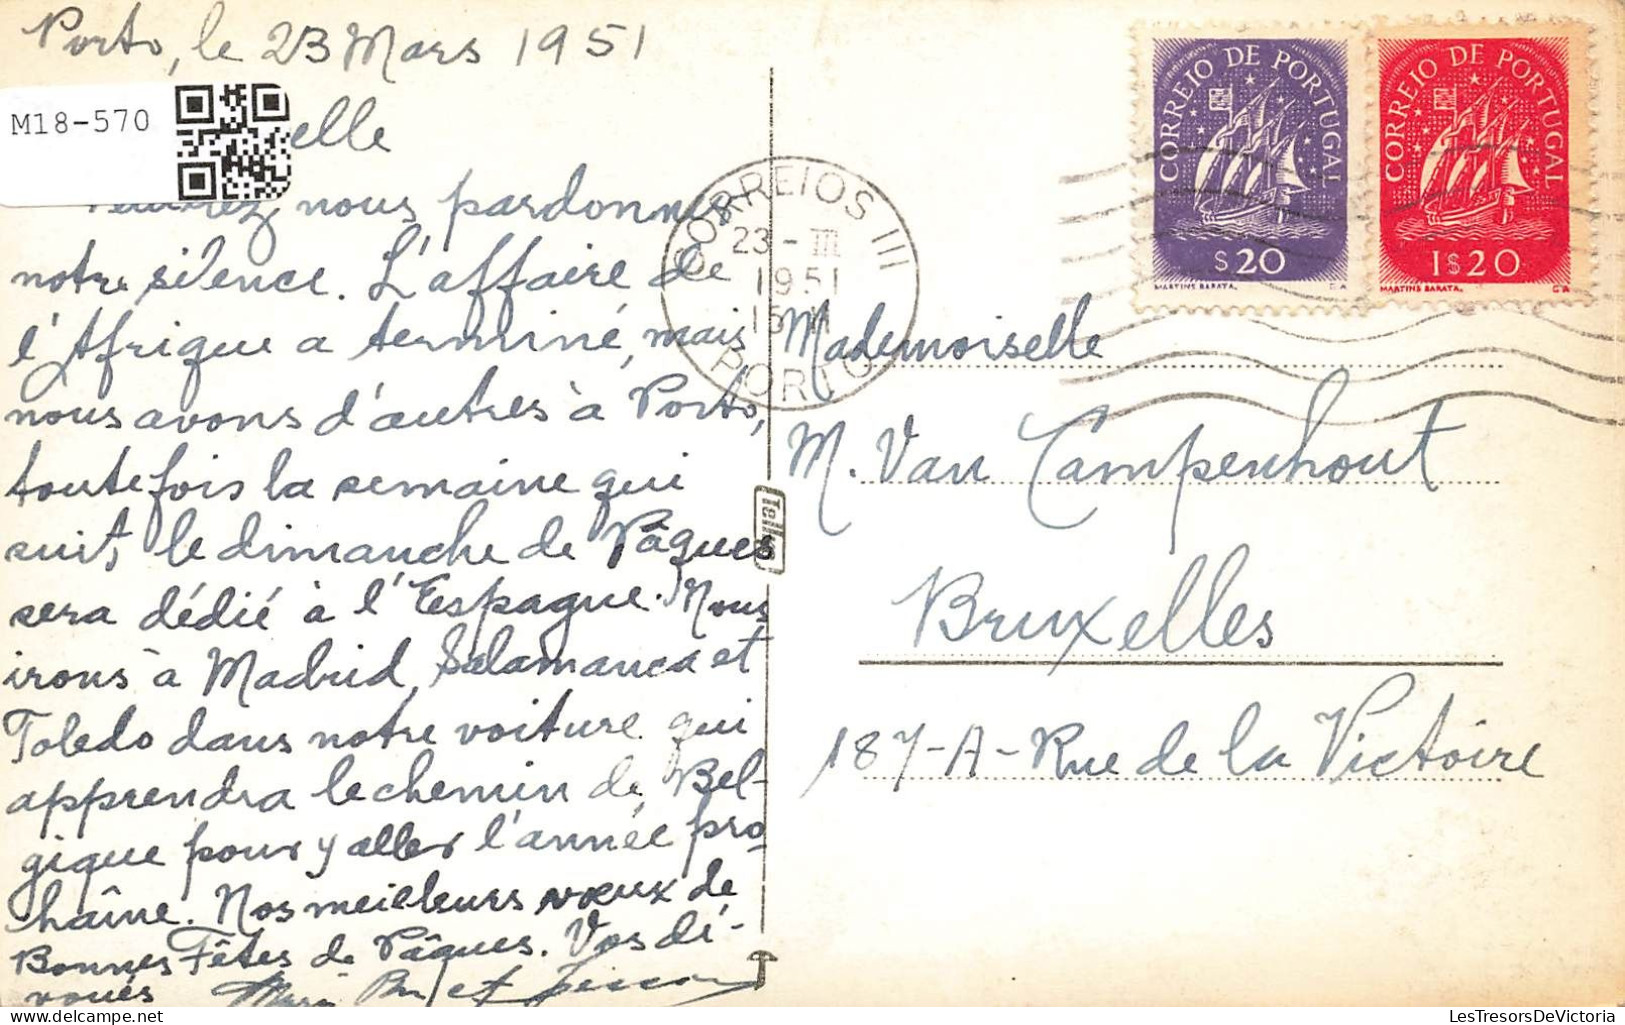 Porto, le 23 Mars 1951
M18-570
elle
nous pardonner
notre silence. L'affaire de
l'Afrique a terminé, mais
nous avons d'autres à Porto,
toutefois la semaine qui
suit, le dimanche de Pâques
sera dédié à l'Espagne. Nous
irons à Madrid, Salamanca et
Toledo dans notre voiture qui
apprendra le chemin de Bel-
gique pour y aller l'année pro-
chaîne. Nos meilleurs vœux de
Bonnes Fêtes de Pâques. Vos dé-
voués
CORREIOS III
23-III
1951
PORTO
CORREIO DE PORTUGAL
$20
MARTINS BARATA.
CORREIO DE PORTUGAL
1$20
MARTINS BARATA.
Mademoiselle
M. Van Campenhout
Bruxelles
187-A-Rue de la Victoire
LesTresorsDeVictoria